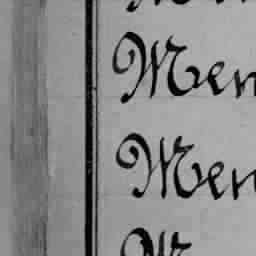 Men
Men